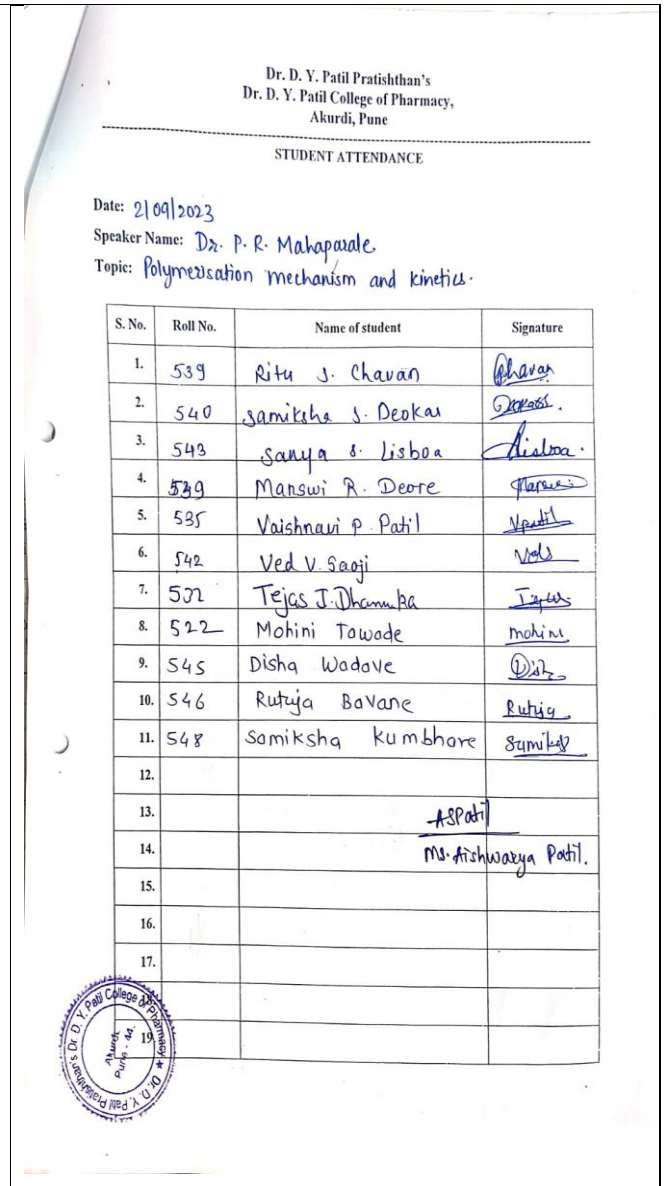 Dr. D. Y. Patil Pratishthan's
Dr. D. Y. Patil College of Pharmacy,
Akurdi, Pune
STUDENT ATTENDANCE
Date: 2/09/2023
Speaker Name: Dr. P. R. Mahaparale
Topic: Polymerisation mechanism and kinetics.
S. No. Roll No. Name of student Signature
1. 539 Ritu S. Chavan Chavan
2. 540 Samiksha S. Deokar
3. 543 Sanya S. Lisboa Lisboa.
4. Manswi R. Deore
5. 535 Vaishnavi P. Patil VPatil
6. 542 Ved V. Saoji
7. Tejas J. Dhamuka
8. 522 Mohini Tawade mohini
9. 545 Disha Wadave
10. 546 Rutuja Bavane Rutuja
11. 548 Samiksha Kumbhare
12.
13. ASPatil
14. Ms. Aishwarya Patil.
15.
16.
17.
18.
19.
Dr. D. Y. Patil Pratishthan's Dr. D. Y. Patil College of Pharmacy ★
Akurdi
Pune - 44.